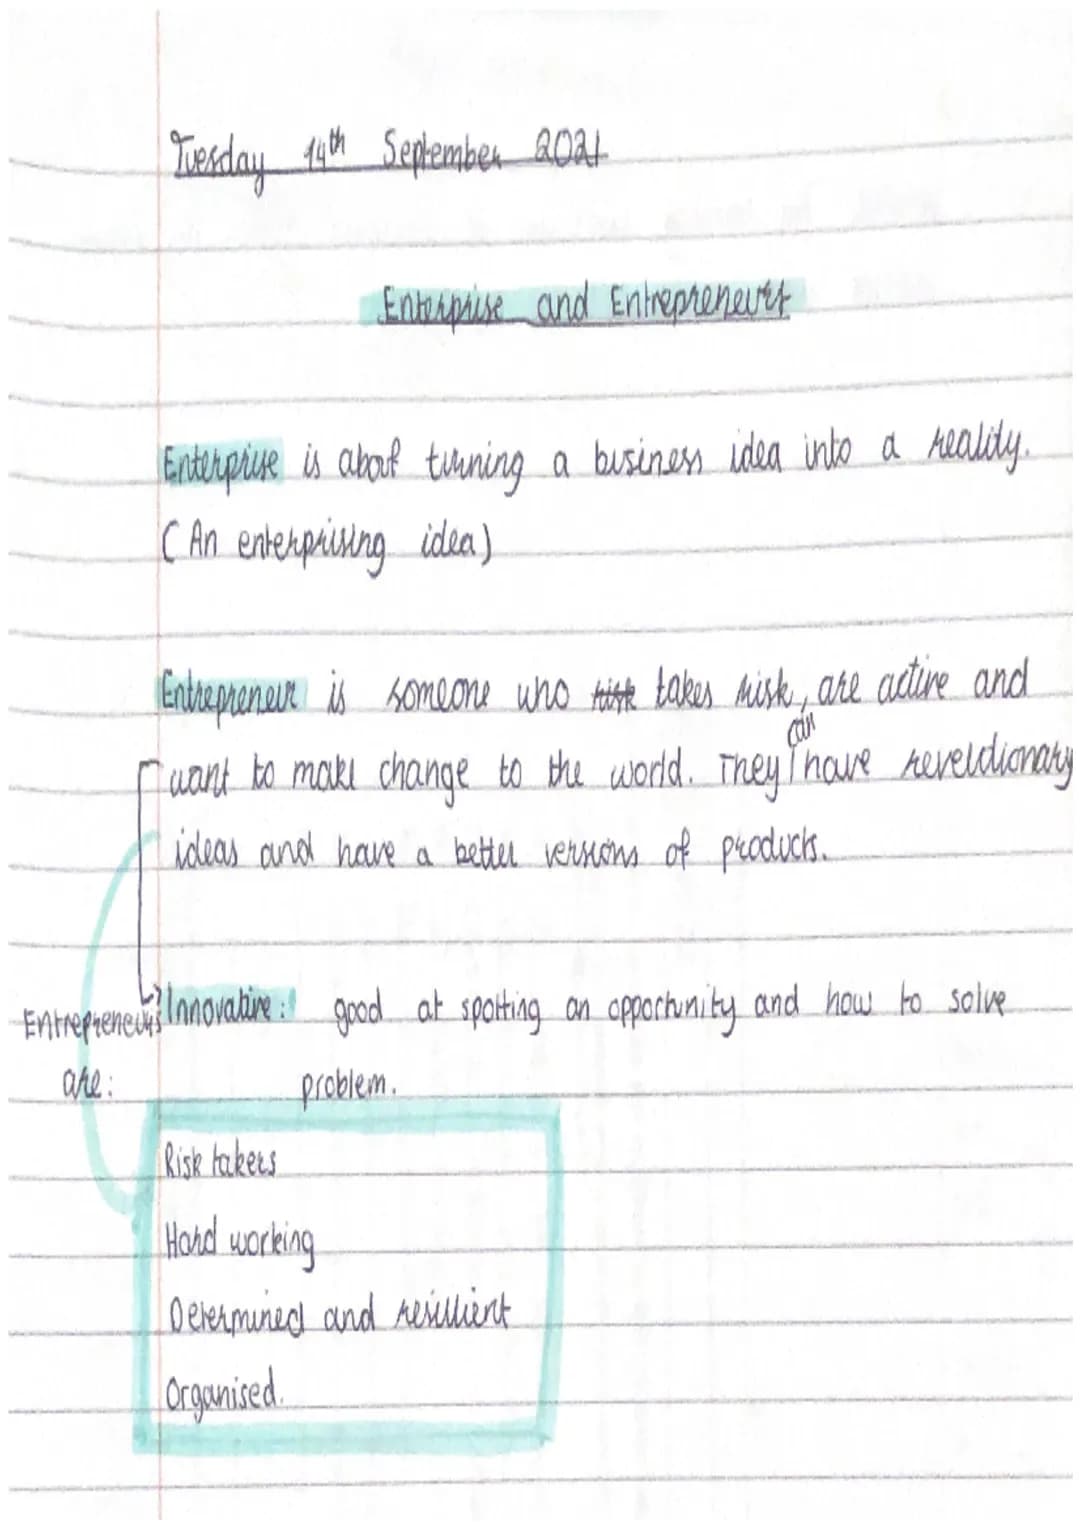 Tuesday 14th September 2021
Enterprise and Entrepreneurs
Enterprise is about turning a business idea into a reality.
(An enterprising idea)
Entrepreneur is someone who risk takes risk, are active and
can
want to make change to the world. They have reveloutionary
ideas and have a better versions of products.
Entrepreneurs Innovative: good at spotting an opportunity and how to solve
are: problem.
Risk takers
Hard working
Determined and resillient
Organised.